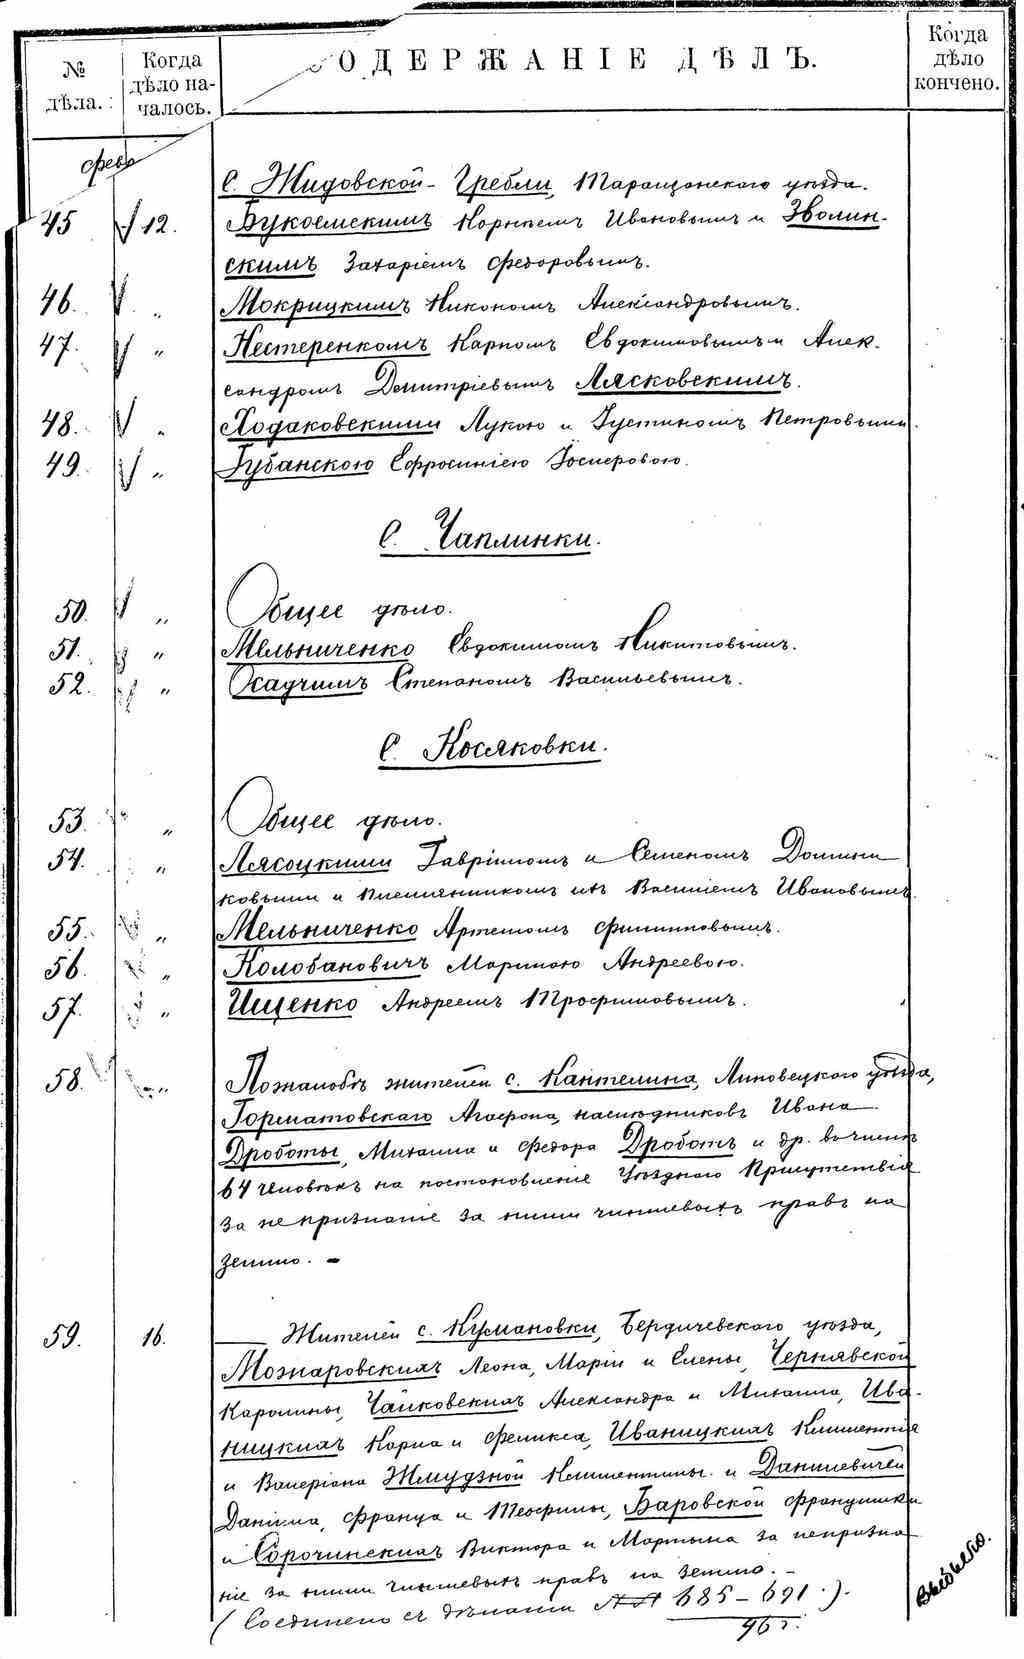 № дѣла.
Когда дѣло началось.
СОДЕРЖАНІЕ ДѢЛЪ.
Когда дѣло кончено.
февр
С. Жидовской-Гребли, Таращанскаго уѣзда.
45 12. Букоемскимъ Корнѣемъ Ивановымъ и Зволин-
скимъ Захаріемъ Федоровымъ.
46. „ Мокрицкимъ Никономъ Александровымъ.
47. „ Нестеренкомъ Карпомъ Евдокимовымъ и Алек-
сандромъ Дмитріевымъ Лясковскимъ.
48. „ Ходаковскими Лукою и Іустиномъ Петровыми.
49. „ Губанскою Ефросиніею Іосиферовою.
С. Чаплинки.
50. „ Общее дѣло.
51. „ Мельниченко Евдокимомъ Никитовымъ.
52. „ Осадчимъ Степаномъ Васильевымъ.
С. Косяковки.
53. „ Общее дѣло.
54. „ Лясоцкими Гавріиломъ и Семеномъ Домини
ковыми и племянникомъ ихъ Василіемъ Ивановымъ.
55. „ Мельниченко Артемомъ Филипповымъ.
56. „ Колобановичъ Мариною Андреевою.
57. „ Ищенко Андреемъ Трофимовымъ.
58. „ По жалобѣ жителей с. Кантелина, Липовецкаго уѣзда,
Горматовскаго Агафона, наслѣдниковъ Ивана
Дроботы, Михаила и Федора Дроботъ и др. въ числѣ
64 человѣкъ на постановленіе Уѣзднаго Присутствія
за непризнаніе за ними чиншевыхъ правъ на
землю. —
59. 16. Жителей с. Кумановки, Бердичевскаго уѣзда,
Можаровскихъ Леона, Маріи и Елены, Чернявской
Каролины, Чайковскихъ Александра и Михаила, Ива-
ницкихъ Карла и Феликса, Иваницкихъ Климентія
и Валеріана Жмудзкой Клементины и Данилевичей
Даніила, Франца и Теофилы, Баровской Францишки
и Сорочинскихъ Виктора и Мартына за непризна
ніе за ними чиншевыхъ правъ на землю. —
(Соединено съ дѣлами №№ 685-691.).
96 г.